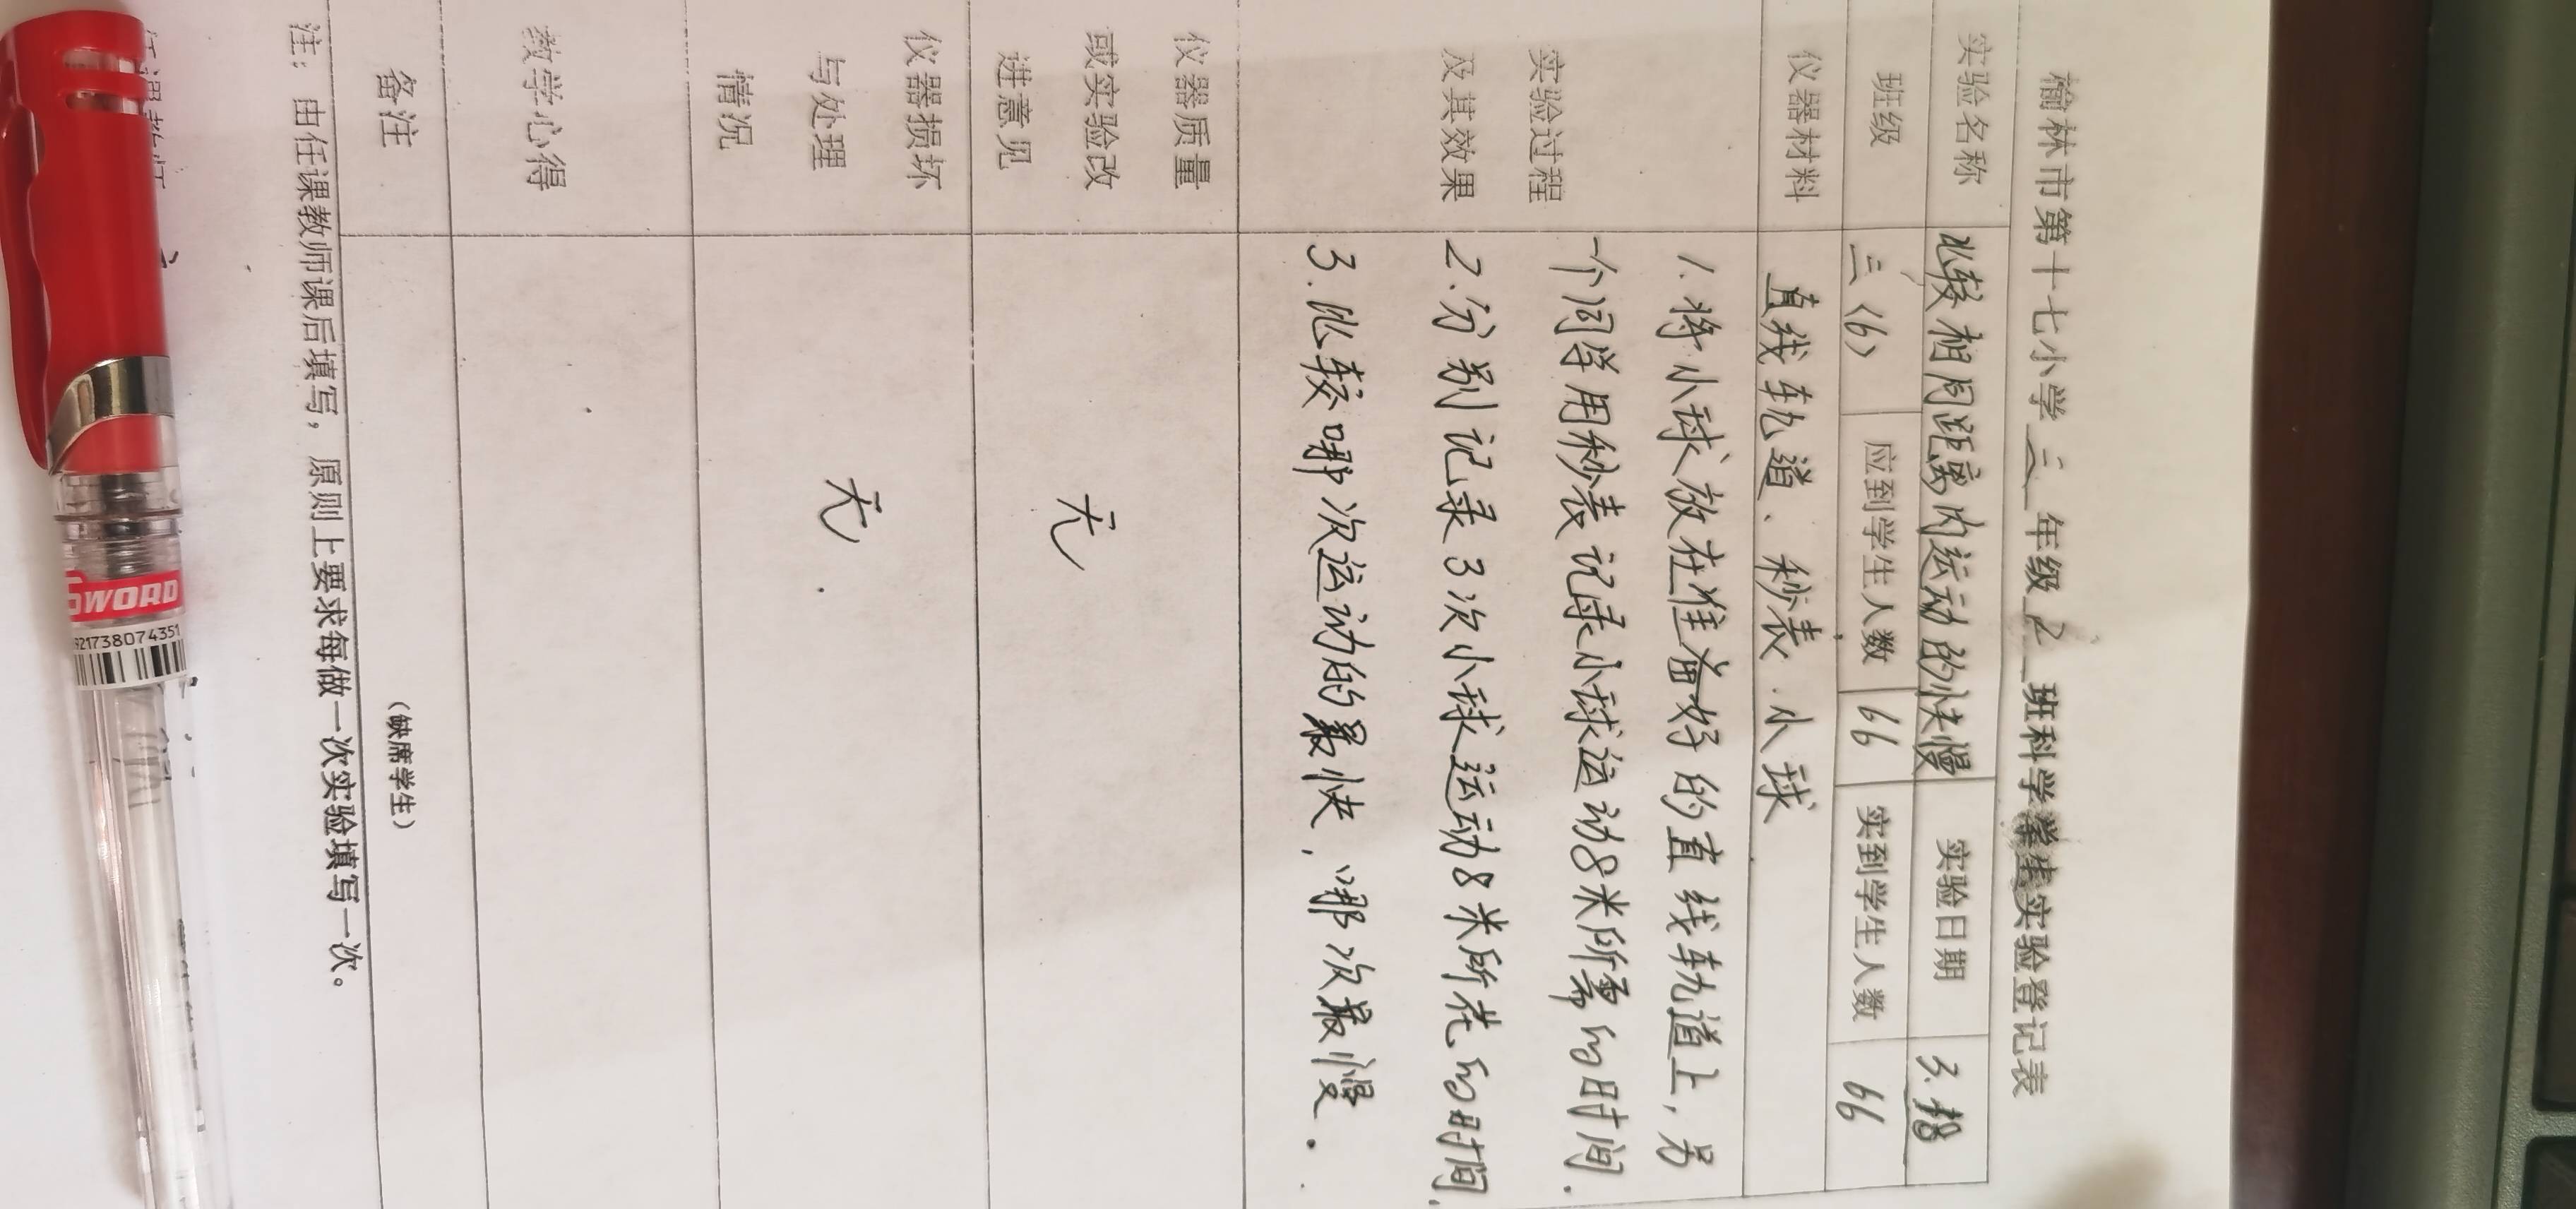 榆林市第十七小学 三 年级 2 班科学学生实验登记表
实验名称 比较相同距离内运动的快慢 实验日期 3.18
班级 三（6） 应到学生人数 66 实到学生人数 66
仪器材料 直线轨道、秒表、小球
实验过程
及其效果
1.将小球放在准备好的直线轨道上，另
一个同学用秒表记录小球运动8米所需的时间.
2.分别记录3次小球运动8米所花的时间.
3.比较哪次运动的最快，哪次最慢.
仪器质量
或实验改
进意见
无
仪器损坏
与处理
情况
无.
教学心得
备注
（缺席学生）
注：由任课教师课后填写，原则上要求每做一次实验填写一次。
任课教师
SWORD
921738074351